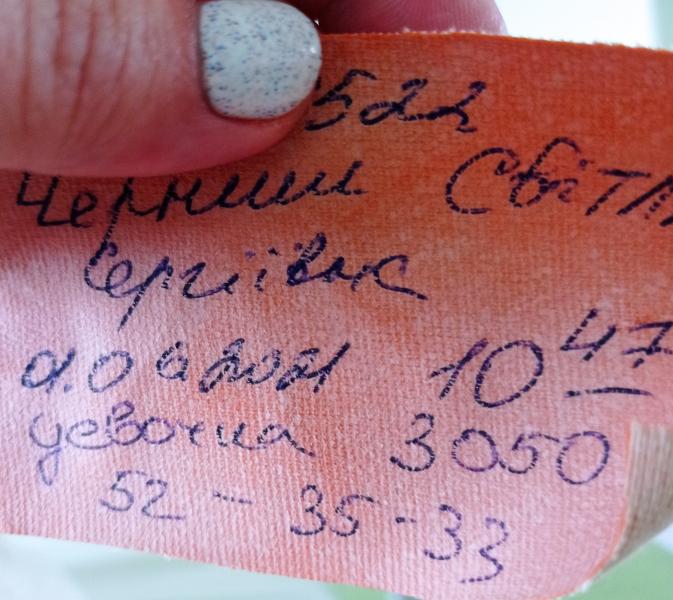 522
Черниш Світл
Сергіївна
10 47
девочка 3050
52 - 35 - 33